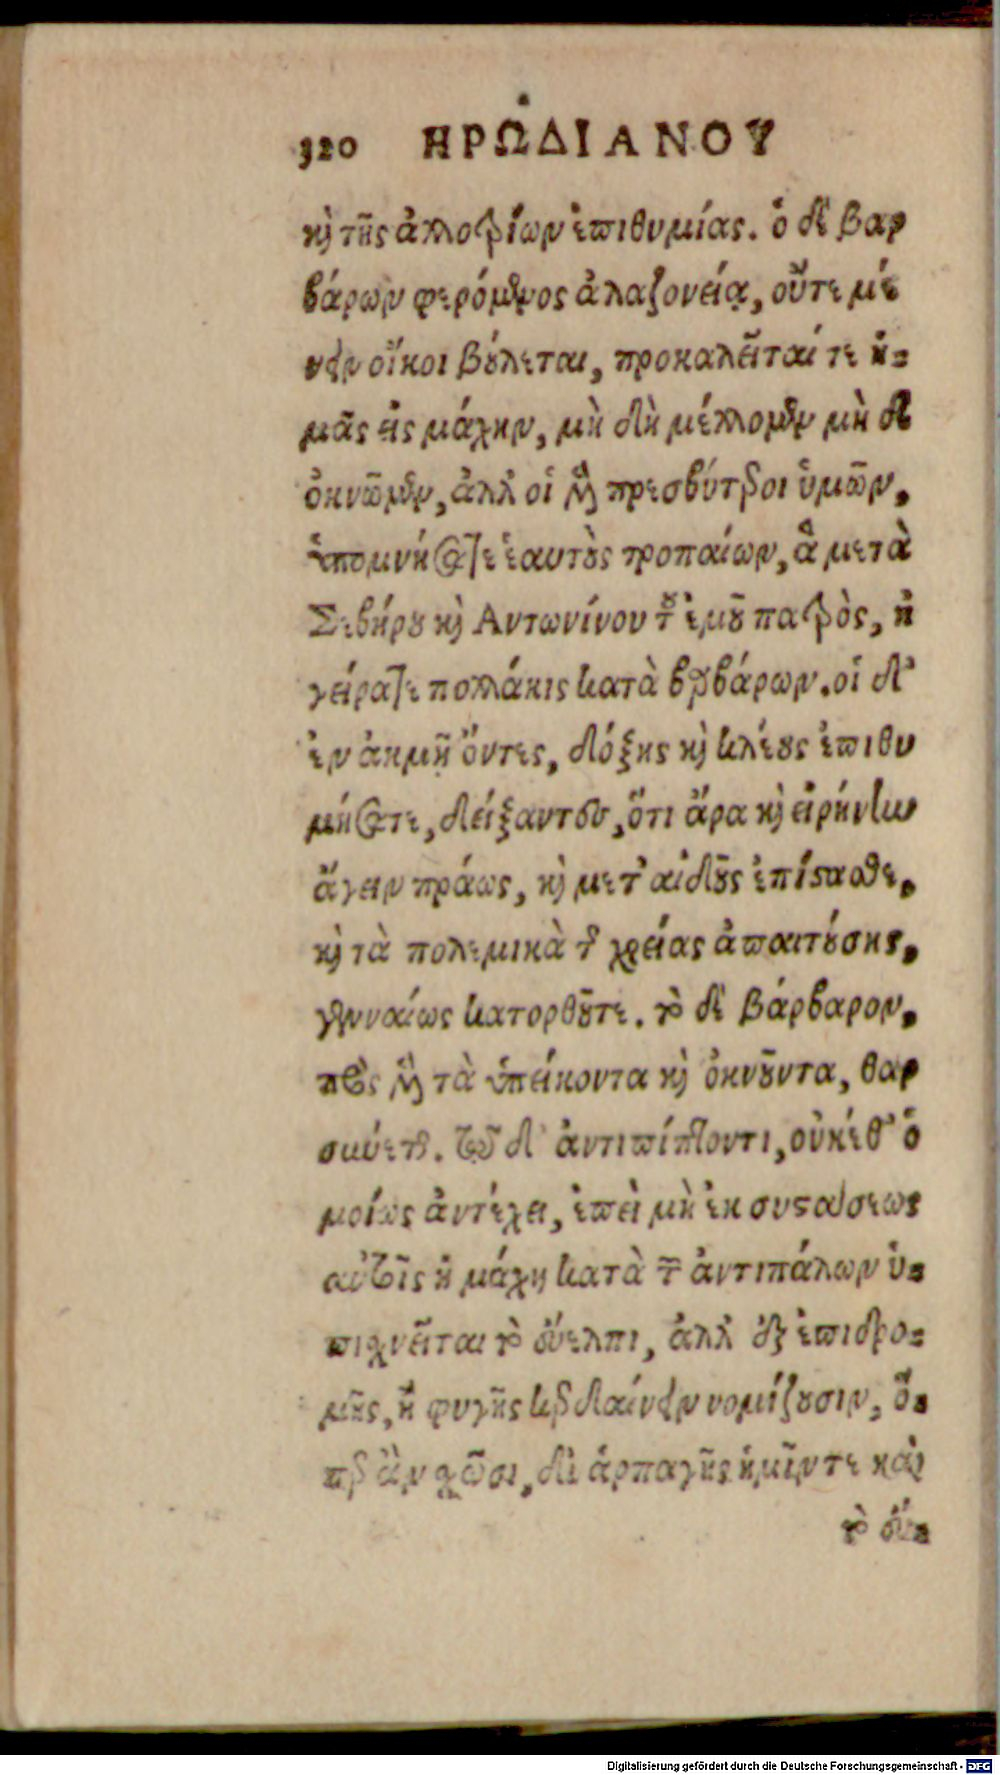 320 ΗΡΩΔΙΑΝΟΥ
καὶ τῆς ἀλλοτρίων ἐπιθυμίας. ὁ δὲ βαρ
βάρων φερόμενος ἀλαζονείᾳ, οὔτε μέ
νειν οἴκοι βούλεται, προκαλεῖταί τε ἡ-
μᾶς εἰς μάχην, μὴ δὴ μέλλομεν μὴ δὲ
ὀκνῶμεν, ἀλλ' οἱ μὲν πρεσβύτεροι ὑμῶν,
ὑπομνήσατε ἑαυτοὺς τροπαίων, ἃ μετὰ
Σεβήρου καὶ Αντωνίνου τοῦ ἐμοῦ πατρὸς, ἠ
γείρατε πολλάκις κατὰ βαρβάρων. οἱ δ'
ἐν ἀκμῇ ὄντες, δόξης καὶ κλέους ἐπιθυ
μήσατε, δείξαντες, ὅτι ἄρα καὶ εἰρήνην
ἄγειν πράως, καὶ μετ' αἰδοῦς ἐπίστασθε,
καὶ τὰ πολεμικὰ τῆς χρείας ἀπαιτούσης,
γενναίως κατορθοῦτε. τὸ δὲ βάρβαρον,
πρὸς μὲν τὰ ὑπείκοντα καὶ ὀκνοῦντα, θαρ
σύνεται. τῷ δ' ἀντιπίπτοντι, οὐκέθ' ὁ
μοίως ἀντέχει, ἐπεὶ μὴ ἐκ συστάσεως
αὐτοῖς ἡ μάχη κατὰ τῶν ἀντιπάλων ὑ-
πισχνεῖται τὸ εὔελπι, ἀλλ' ἐξ ἐπιδρο-
μῆς, ἢ φυγῆς κερδαίνειν νομίζουσιν, ὅ-
περ ἂν σχῶσι, δι ἁρπαγῆς ἡμῖν τε καὶ
τὸ εὔ-
Digitalisierung gefördert durch die Deutsche Forschungsgemeinschaft - DFG